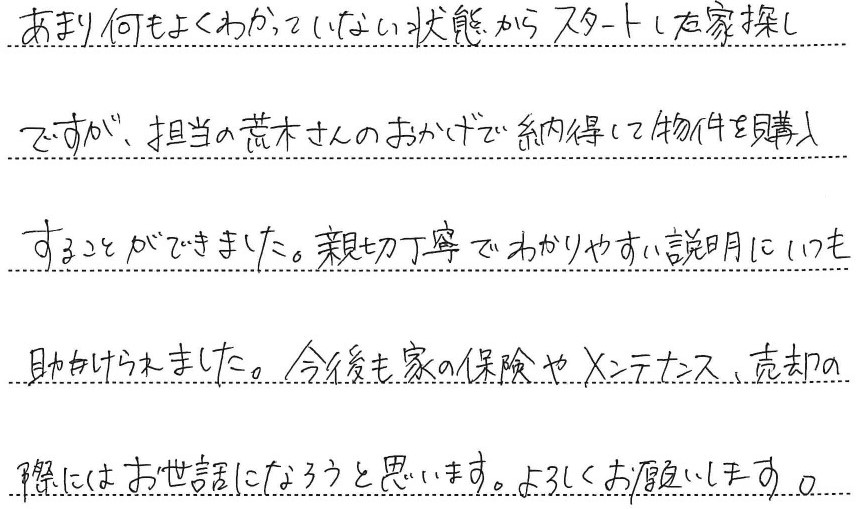 あまり何もよくわかっていない状態からスタートした家探し
ですが、担当の荒木さんのおかげで納得して物件を購入
することができました。親切丁寧でわかりやすい説明にいつも
助けられました。今後も家の保険やメンテナンス、売却の
際にはお世話になろうと思います。よろしくお願いします。